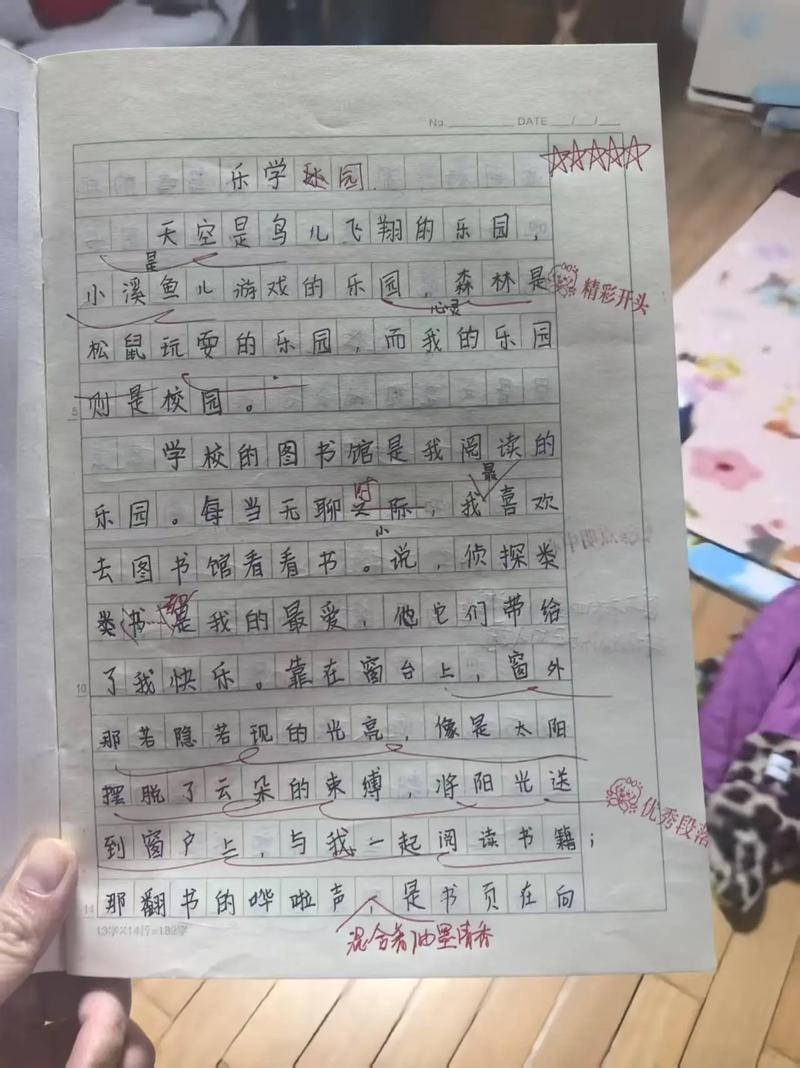 No. DATE / /
☆☆☆☆☆
乐学校园
天空是鸟儿飞翔的乐园，
是
小溪鱼儿游戏的乐园，森林是
精彩开头
心灵
松鼠玩耍的乐园，而我的乐园
5
则是校园。
学校的图书馆是我阅读的
最
时
乐园。每当无聊之际，我喜欢
小
去图书馆看看书。说，侦探类
类书是我的最爱，他它们带给
10
了我快乐。靠在窗台上，窗外
那若隐若现的光亮，像是太阳
摆脱了云朵的束缚，将阳光送
优秀段落
到窗户上，与我一起阅读书籍；
14
那翻书的哗啦声，是书页在向
混合着油墨清香
13字×14行=182字